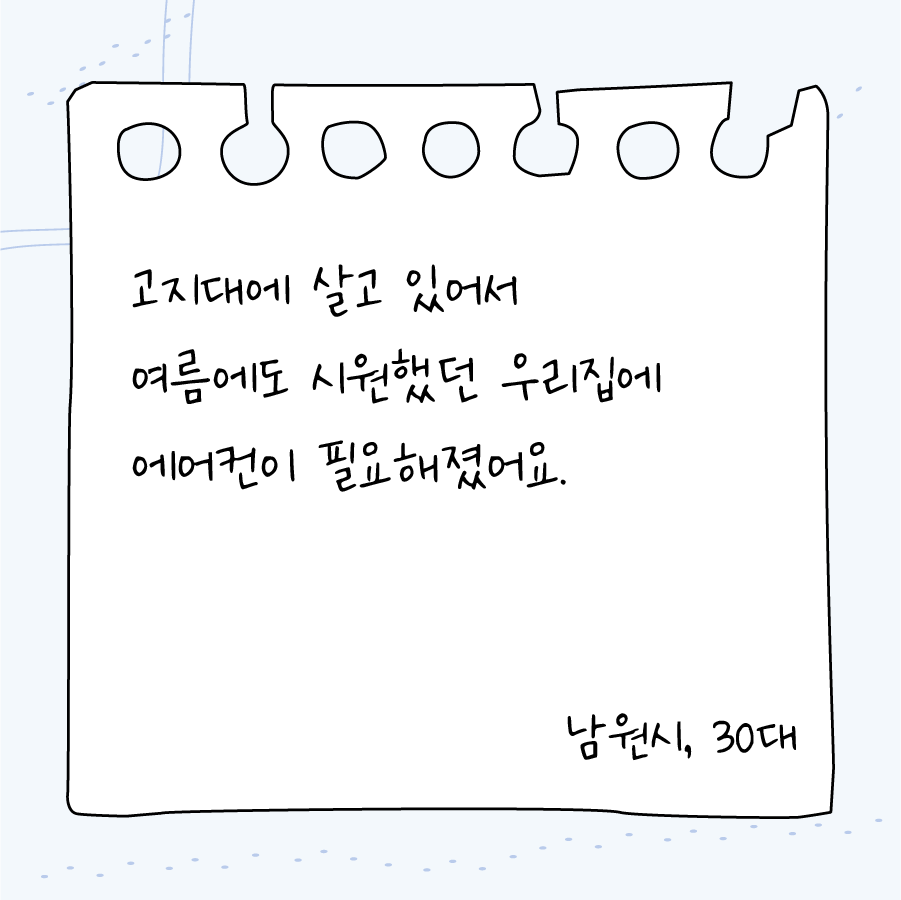 고지대에 살고 있어서
여름에도 시원했던 우리집에
에어컨이 필요해졌어요.
남원시, 30대